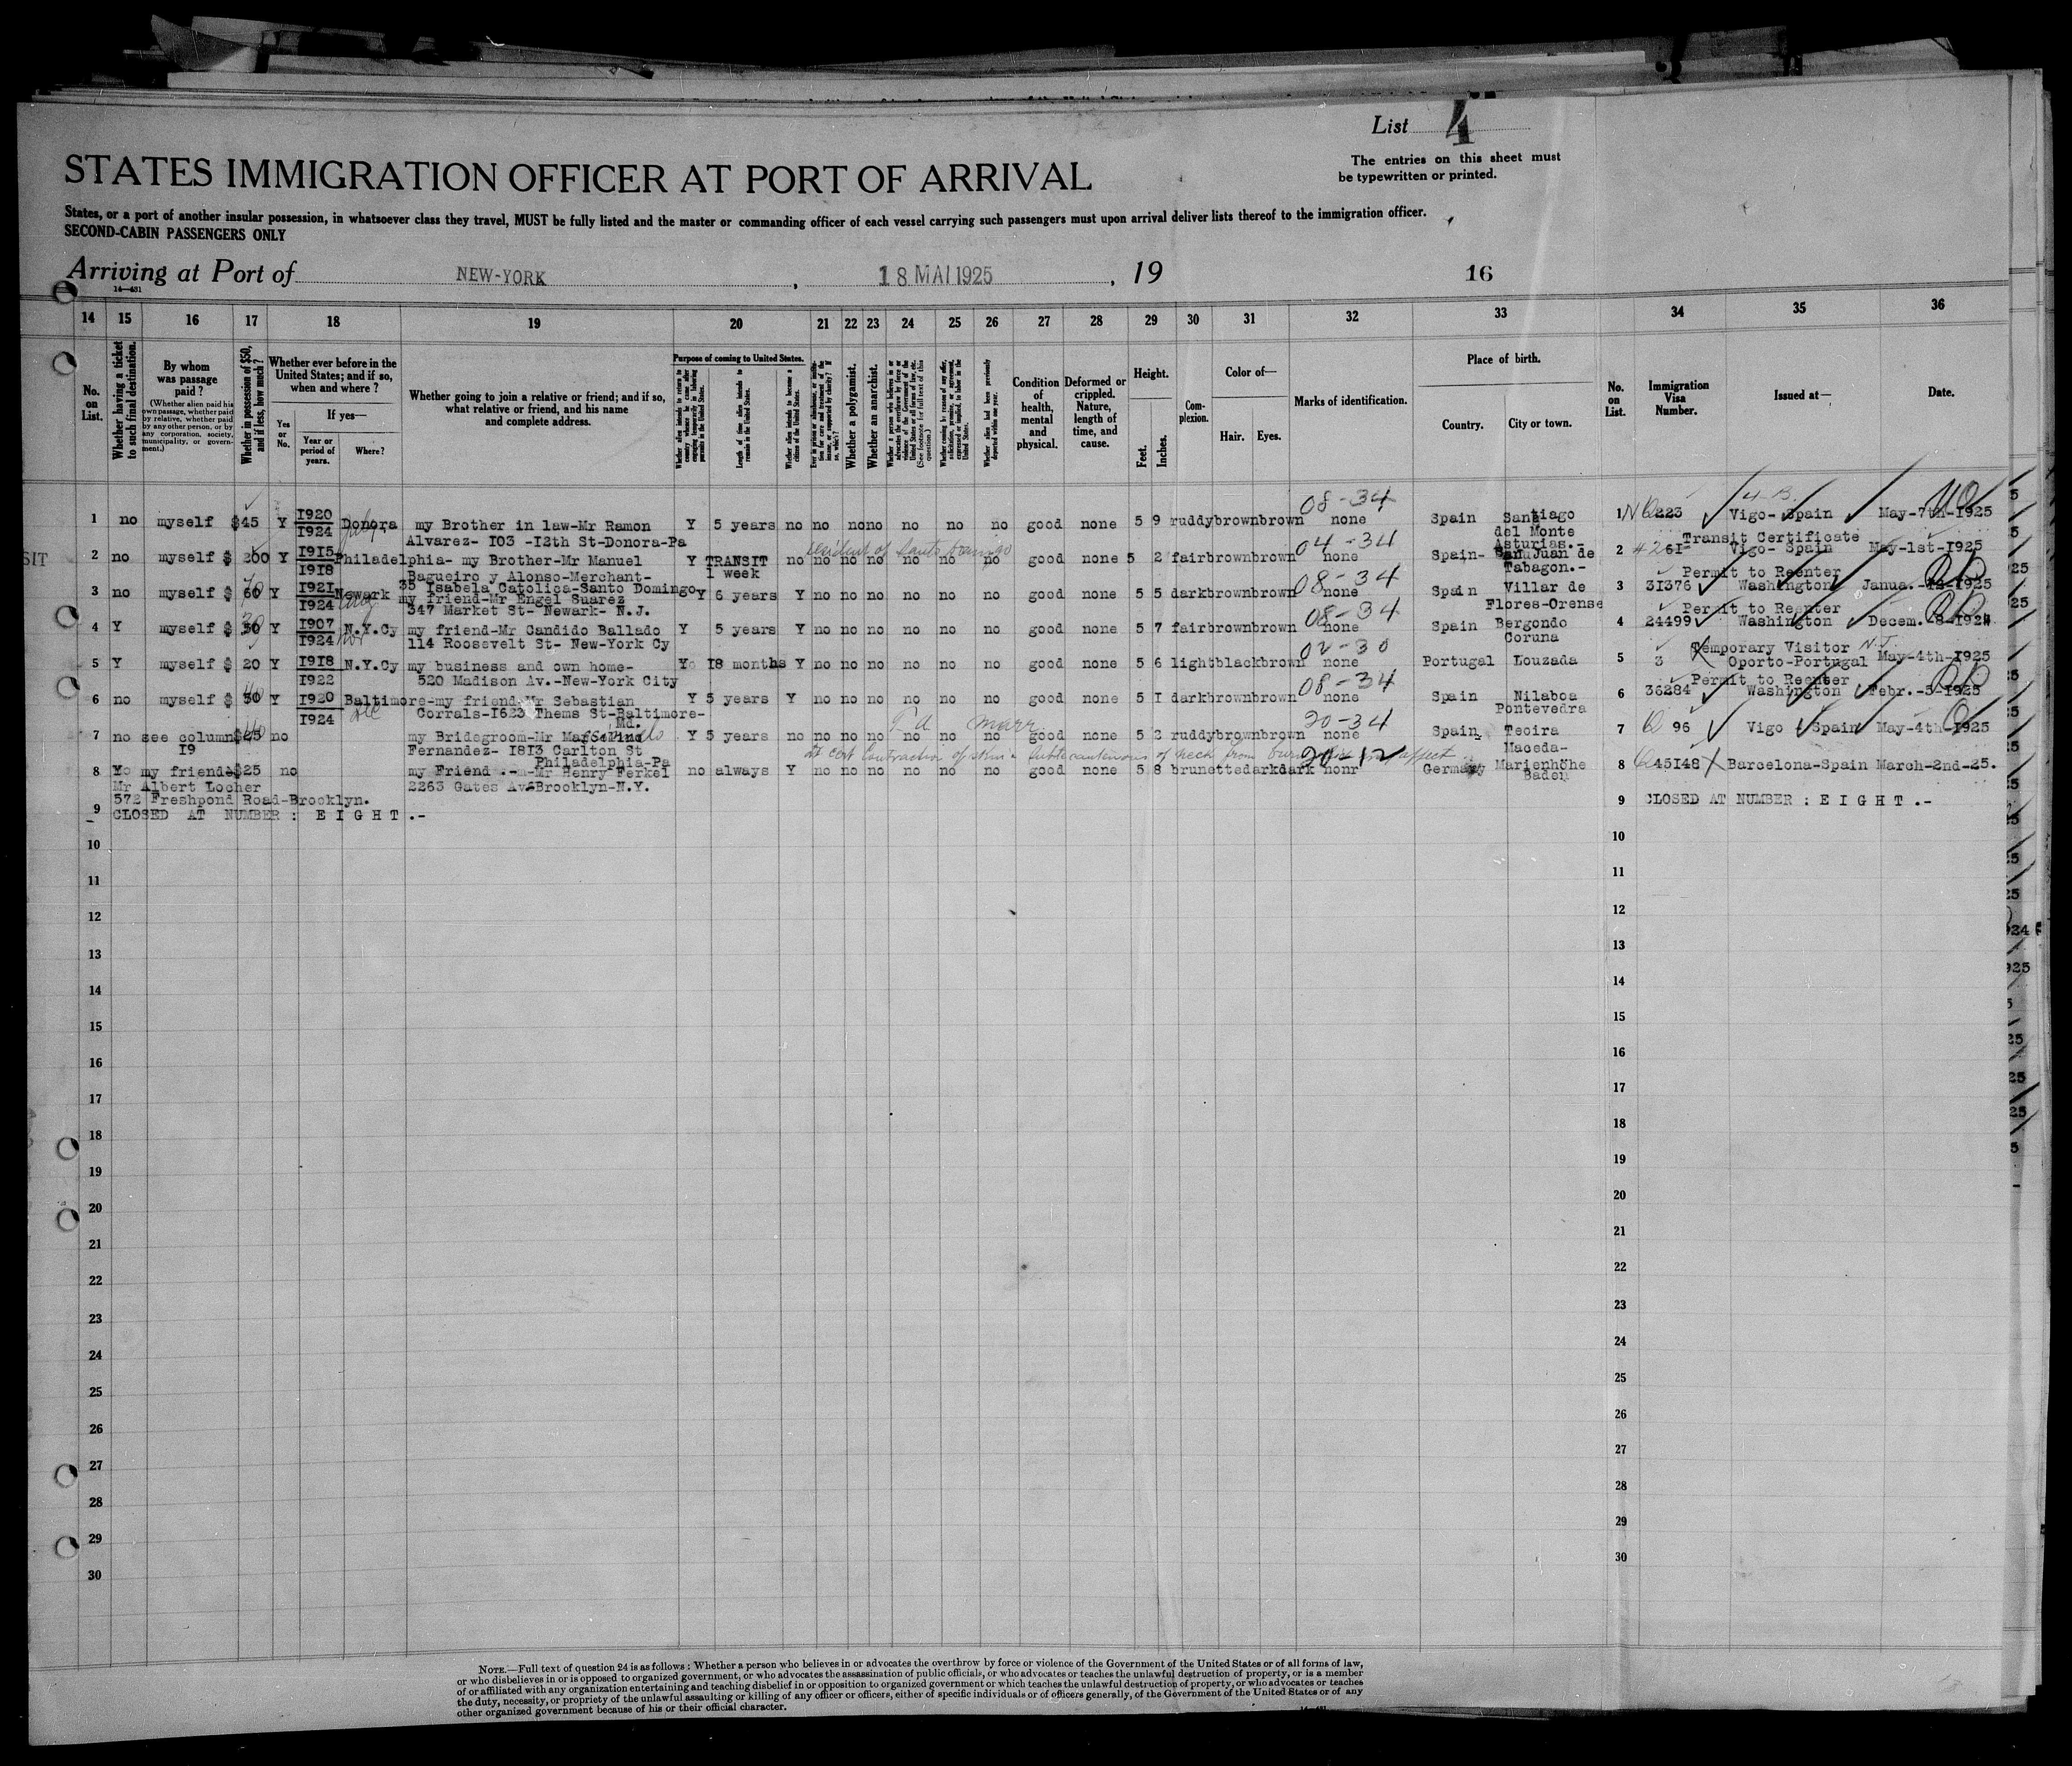 List 4
The entries on this sheet must
be typewritten or printed.
STATES IMMIGRATION OFFICER AT PORT OF ARRIVAL
States, or a port of another insular possession, in whatsoever class they travel, MUST be fully listed and the master or commanding officer of each vessel carrying such passengers must upon arrival deliver lists thereof to the immigration officer.
SECOND-CABIN PASSENGERS ONLY
Arriving at Port of NEW-YORK , 18 MAI 1925 , 19 16
14 15 16 17 18 19 20 21 22 23 24 25 26 27 28 29 30 31 32 33 34 35 36
No. on List.
Whether having a ticket to such final destination.
By whom was passage paid?
(Whether alien paid his own passage, whether paid by relative, whether paid by any other person, or by any corporation, society, municipality, or government.)
Whether in possession of $50, and if less, how much?
Whether ever before in the United States; and if so, when and where?
Yes or No.
If yes—
Year or period of years.
Where?
Whether going to join a relative or friend; and if so, what relative or friend, and his name and complete address.
Purpose of coming to United States.
Length of time alien intends to remain in the United States.
Whether alien intends to become a citizen of the United States.
Whether a polygamist.
Whether an anarchist.
Whether alien had been previously deported within one year.
Condition of health, mental and physical.
Deformed or crippled. Nature, length of time, and cause.
Height.
Feet. Inches.
Complexion.
Color of—
Hair. Eyes.
Marks of identification.
Place of birth.
Country. City or town.
No. on List.
Immigration Visa Number.
Issued at—
Date.
08-34
1 no myself $45 Y I920 I924 Donora my Brother in law-Mr Ramon Y 5 years no no no no no no no good none 5 9 ruddy brown brown none Spain Santiago 1 223 Vigo- Spain May-7th-I925
Alvarez- I03 -I2th St-Donora-Pa del Monte Asturias.-
Transit Certificate
04-34
SIT 2 no myself $ 200 Y I915 I9I8 Philadelphia- my Brother-Mr Manuel Y TRANSIT 1 week no no no no no no no good none 5 2 fair brown brown none Spain- San Juan de Tabagon.- 2 6I Vigo- Spain May-1st-I925
Bagueiro y Alonso-Merchant-
35 Isabela Catolica-Santo Domingo
Permit to Reenter
08-34
3 no myself $ 60 Y I921 I924 Newark my friend-Mr Engel Suarez Y 6 years Y no no no no no no good none 5 5 dark brown brown none Spain Villar de Flores-Orense 3 3I376 Washington Janua.-I2-I925
347 Market St- Newark- N.J.
Permit to Reenter
08-34
4 Y myself $ 50 Y I907 I924 N.Y.Cy my friend-Mr Candido Ballado Y 5 years Y no no no no no no good none 5 7 fair brown brown none Spain Bergondo Coruna 4 24499 Washington Decem. -8-I924
114 Roosevelt St- New-York Cy
Temporary Visitor
02-30
5 Y myself $ 20 Y I9I8 I922 N.Y.Cy my business and own home- Y I8 months Y no no no no no no good none 5 6 light black brown none Portugal Louzada 5 3 Oporto-Portugal May-4th-I925
520 Madison Av.-New-York City
Permit to Reenter
08-34
6 no myself $ 50 Y I920 I924 Baltimore-my friend-Mr Sebastian Y 5 years Y no no no no no no good none 5 I dark brown brown none Spain Nilaboa Pontevedra 6 36284 Washington Febr.-5-I925
Corrals-I623 Thems St-Baltimore-Md.
20-34
7 no see column I9 no my Bridegroom-Mr Y 5 years no no no no no no no good none 5 2 ruddy brown brown none Spain Teoira Maceda- 7 96 Vigo Spain May-4th-I925
Fernandez- I8I3 Carlton St
Philadelphia-Pa
20-12
8 my friend $25 no my Friend .- -Mr Henry Ferkel no always Y no no no no no no good none 5 8 brunette dark dark nonr Germany Marienhöhe Baden 8 45I48 Barcelona-Spain March-2nd-25.
Mr Albert Locher 2263 Gates Av Brooklyn-N.Y.
572 Freshpond Road-Brooklyn.
9 CLOSED AT NUMBER : E I G H T .- 9 CLOSED AT NUMBER : E I G H T .-
10 10
11 11
12 12
13 13
14 14
15 15
16 16
17 17
18 18
19 19
20 20
21 21
22 22
23 23
24 24
25 25
26 26
27 27
28 28
29 29
30 30
NOTE.—Full text of question 24 is as follows: Whether a person who believes in or advocates the overthrow by force or violence of the Government of the United States or of all forms of law,
or who disbelieves in or is opposed to organized government, or who advocates the assassination of public officials, or who advocates or teaches the unlawful destruction of property, or is a member
of or affiliated with any organization entertaining and teaching disbelief in or opposition to organized government or which teaches the unlawful destruction of property, or who advocates or teaches
the duty, necessity, or propriety of the unlawful assaulting or killing of any officer or officers, either of specific individuals or of officers generally, of the Government of the United States or of any
other organized government because of his or their official character.